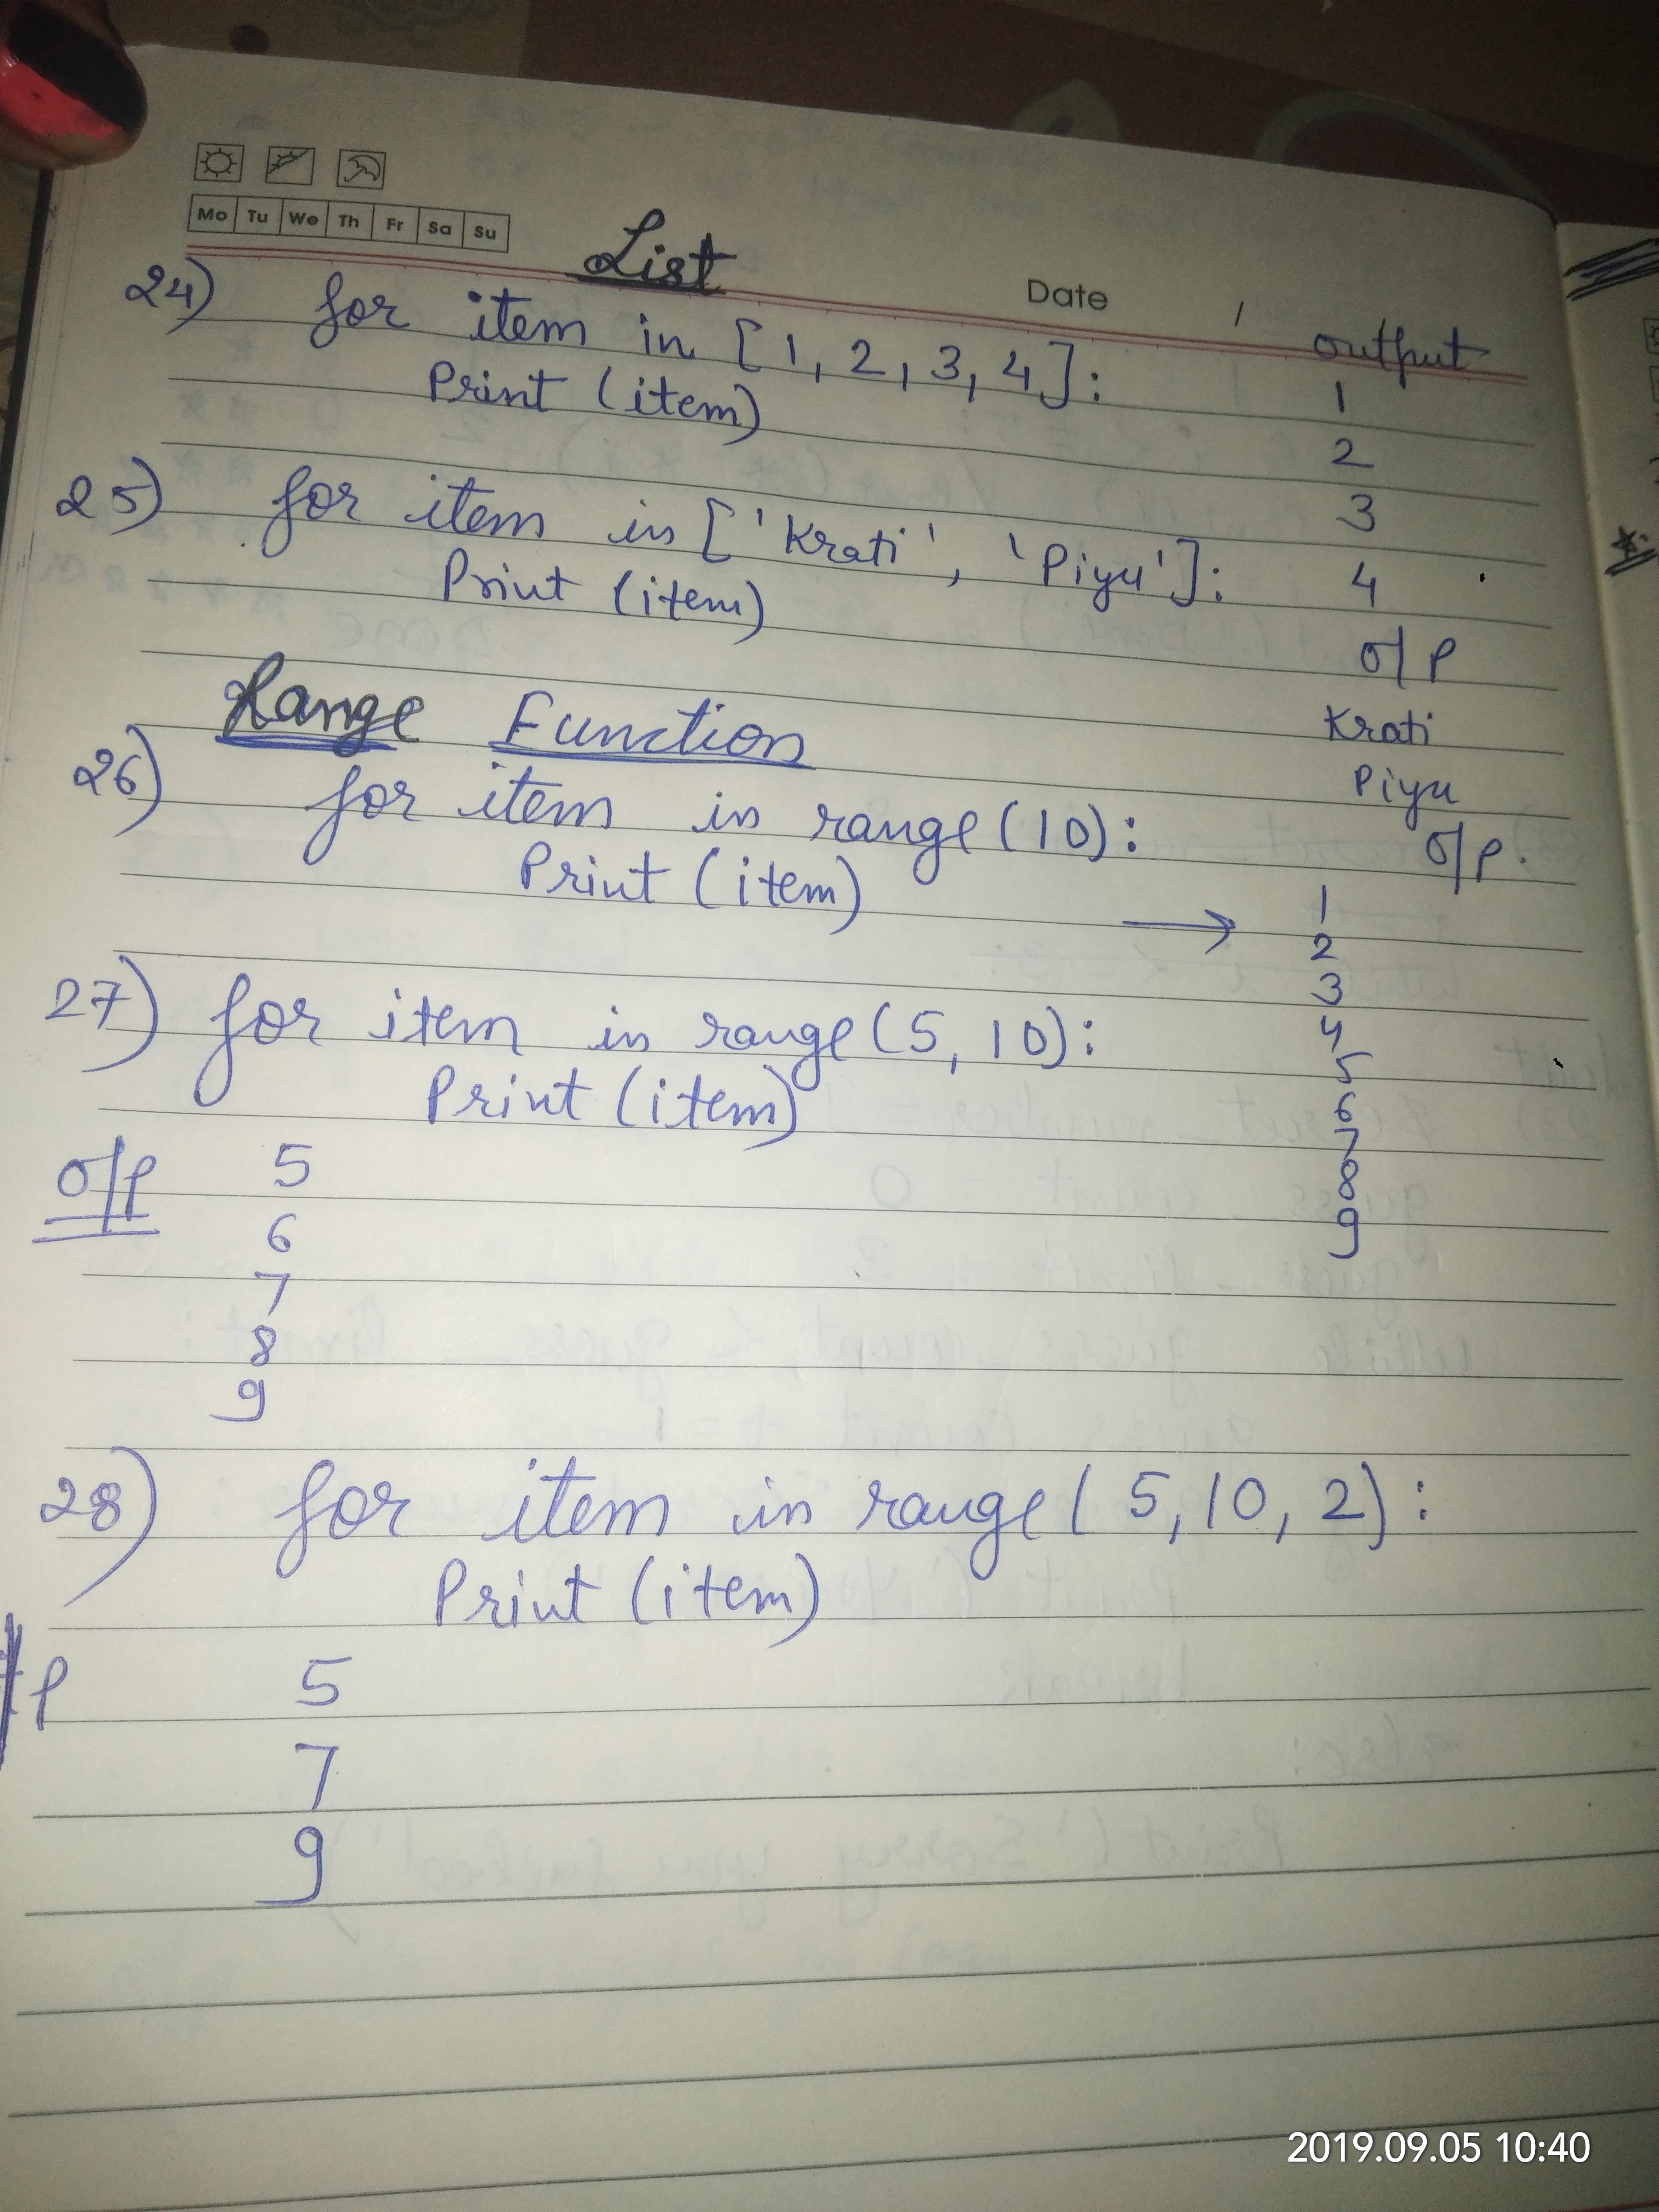 Mo Tu We Th Fr Sa Su
List
Date /
24) for item in [1, 2, 3, 4]:
Print (item)
output
1
2
3
4
25) for item in ['Krati', 'Piyu']:
Print (item)
o/p
Krati
Piyu
Range Function
26) for item in range (10):
Print (item)
o/p.
→ 1
2
3
4
5
6
7
8
9
27) for item in range (5, 10):
Print (item)
o/p 5
6
7
8
9
28) for item in range ( 5, 10, 2):
Print (item)
/p 5
7
9
2019.09.05 10:40